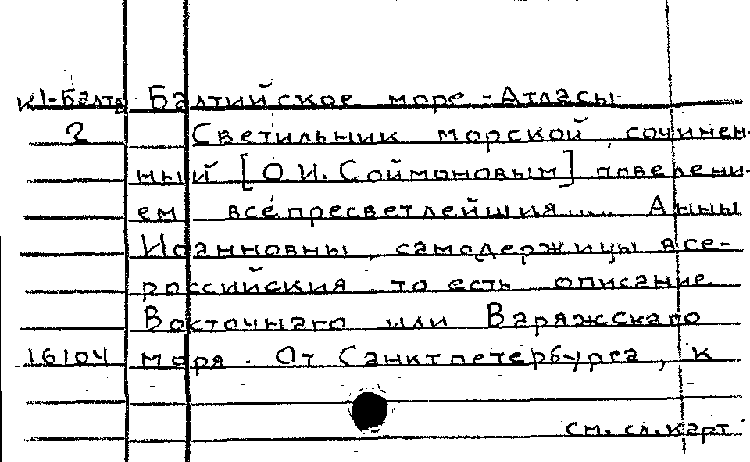 К1-Балт Балтийское море - Атласы
2 Светильник морской, сочинен-
ный [О.И. Соймоновым] повелени-
ем всепресветлейшия .... Анны
Иоанновны, самодержицы все-
российския то есть описание
Восточнаго или Варяжскаго
16104 моря. От Санктпетербурга, к
см. сл. карт.